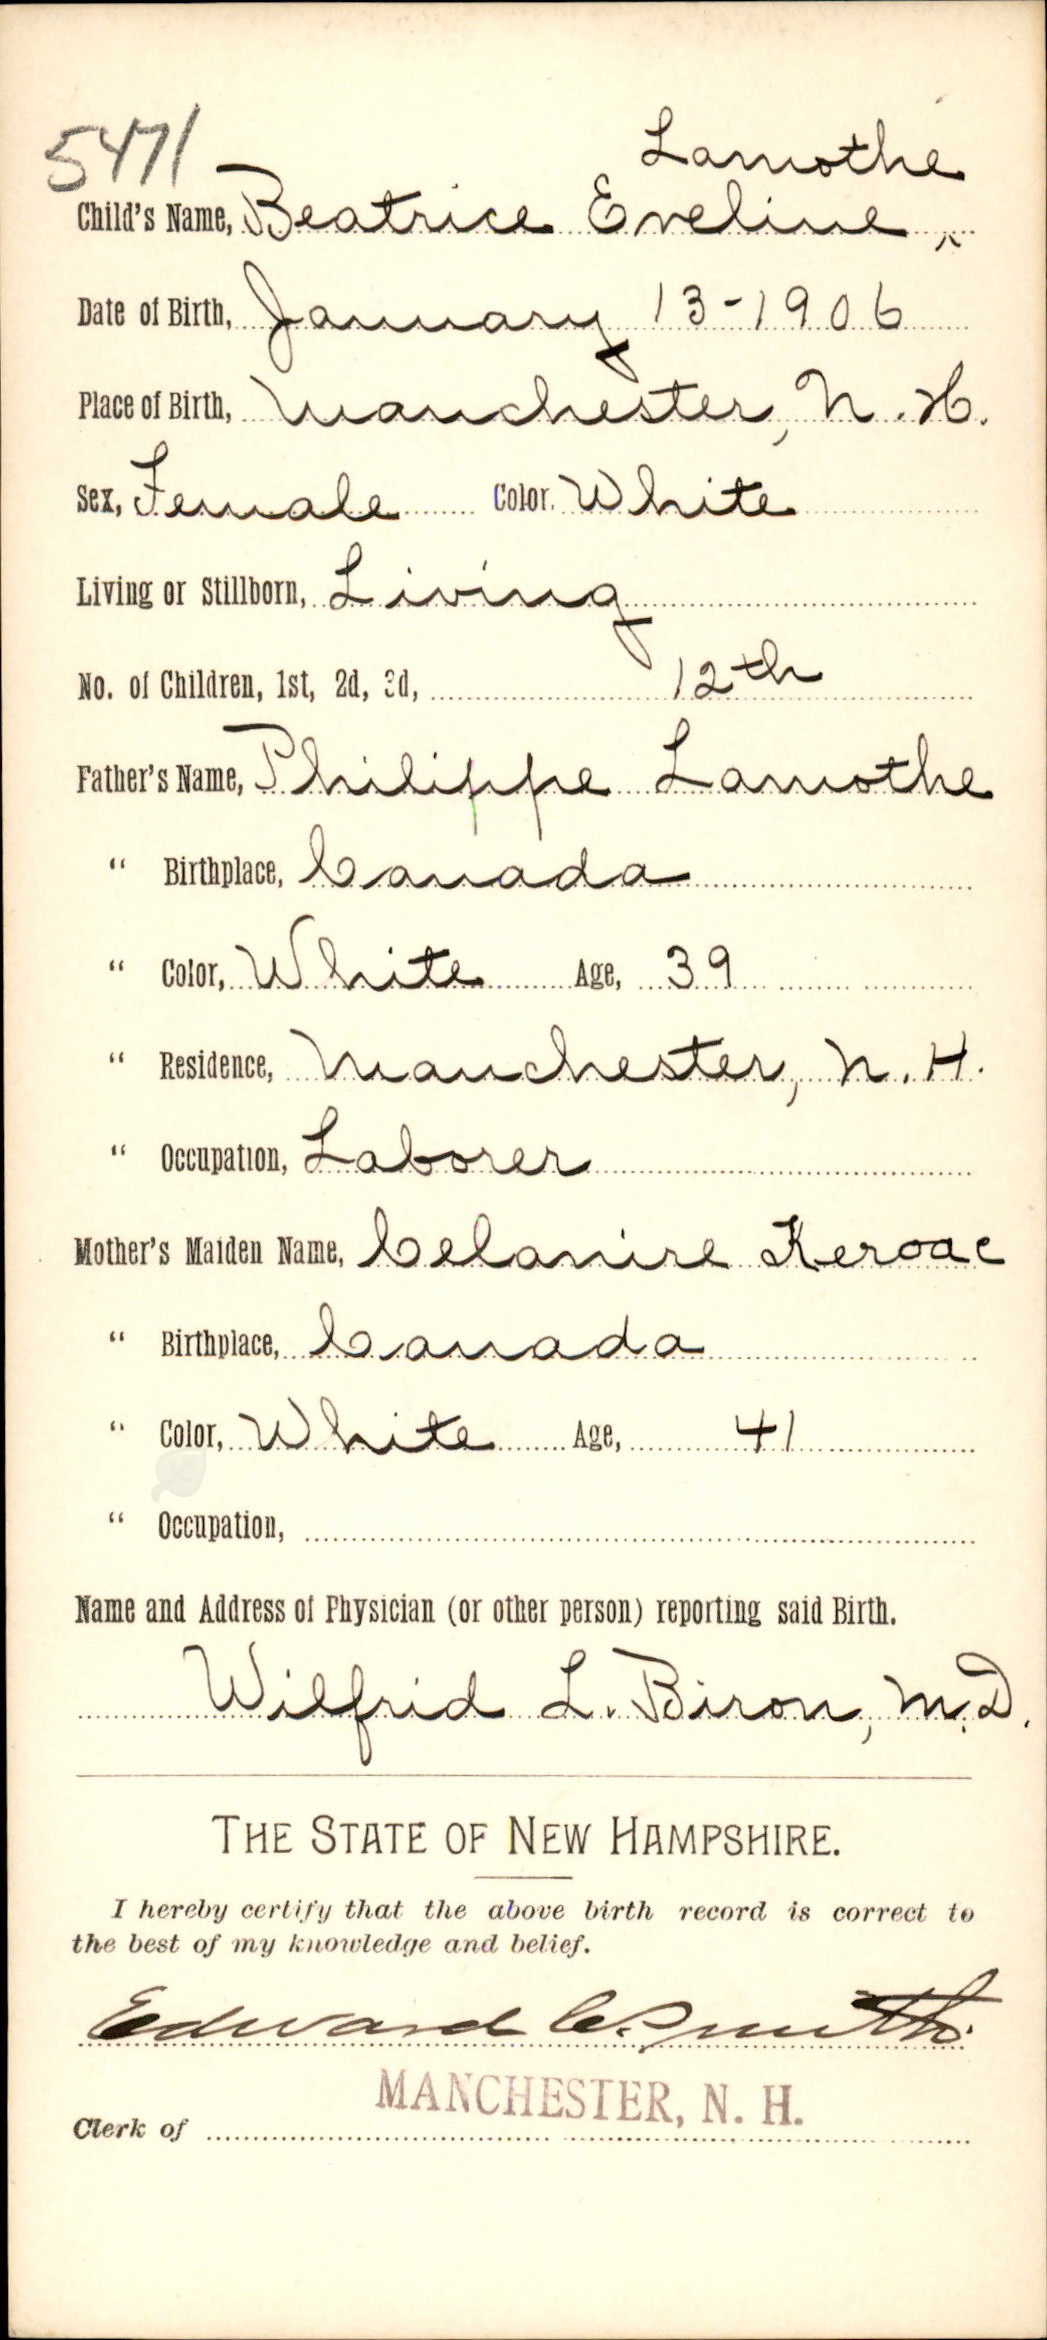 5471
Lamothe
Child's Name, Beatrice Eveline ^
Date of Birth, January 13-1906
Place of Birth, Manchester, N. H.
Sex, Female Color. White
Living or Stillborn, Living
No. of Children, 1st, 2d, 3d, 12th
Father's Name, Philippe Lamothe
" Birthplace, Canada
" Color, White Age, 39
" Residence, Manchester, N. H.
" Occupation, Laborer
Mother's Maiden Name, Celanire Keroac
" Birthplace, Canada
" Color, White Age, 41
" Occupation,
Name and Address of Physician (or other person) reporting said Birth.
Wilfrid L. Biron, M.D.
THE STATE OF NEW HAMPSHIRE.
I hereby certify that the above birth record is correct to
the best of my knowledge and belief.
Edward C. Smith
MANCHESTER, N. H.
Clerk of